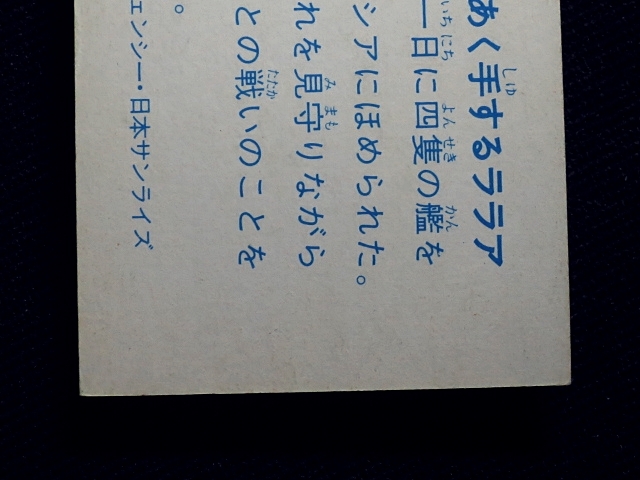 あく手するララア
一日に四隻の艦を
シアにほめられた。
れを見守りながら
との戦いのことを
。
ェンシー・日本サンライズ